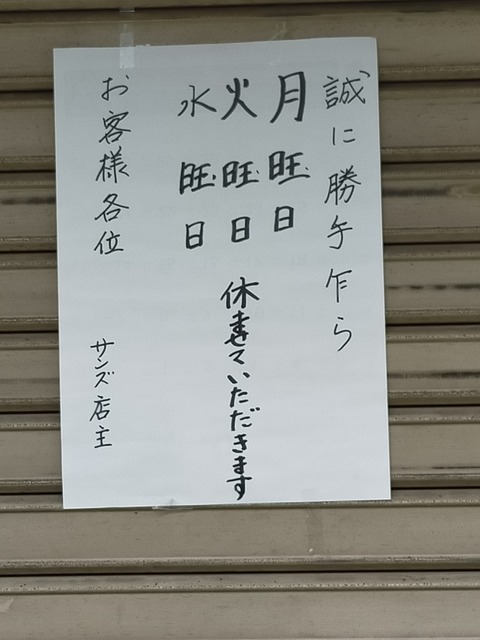 誠に勝手乍ら
月旺日
火旺日
水旺日
休ませていただきます
お客様各位
サンズ店主